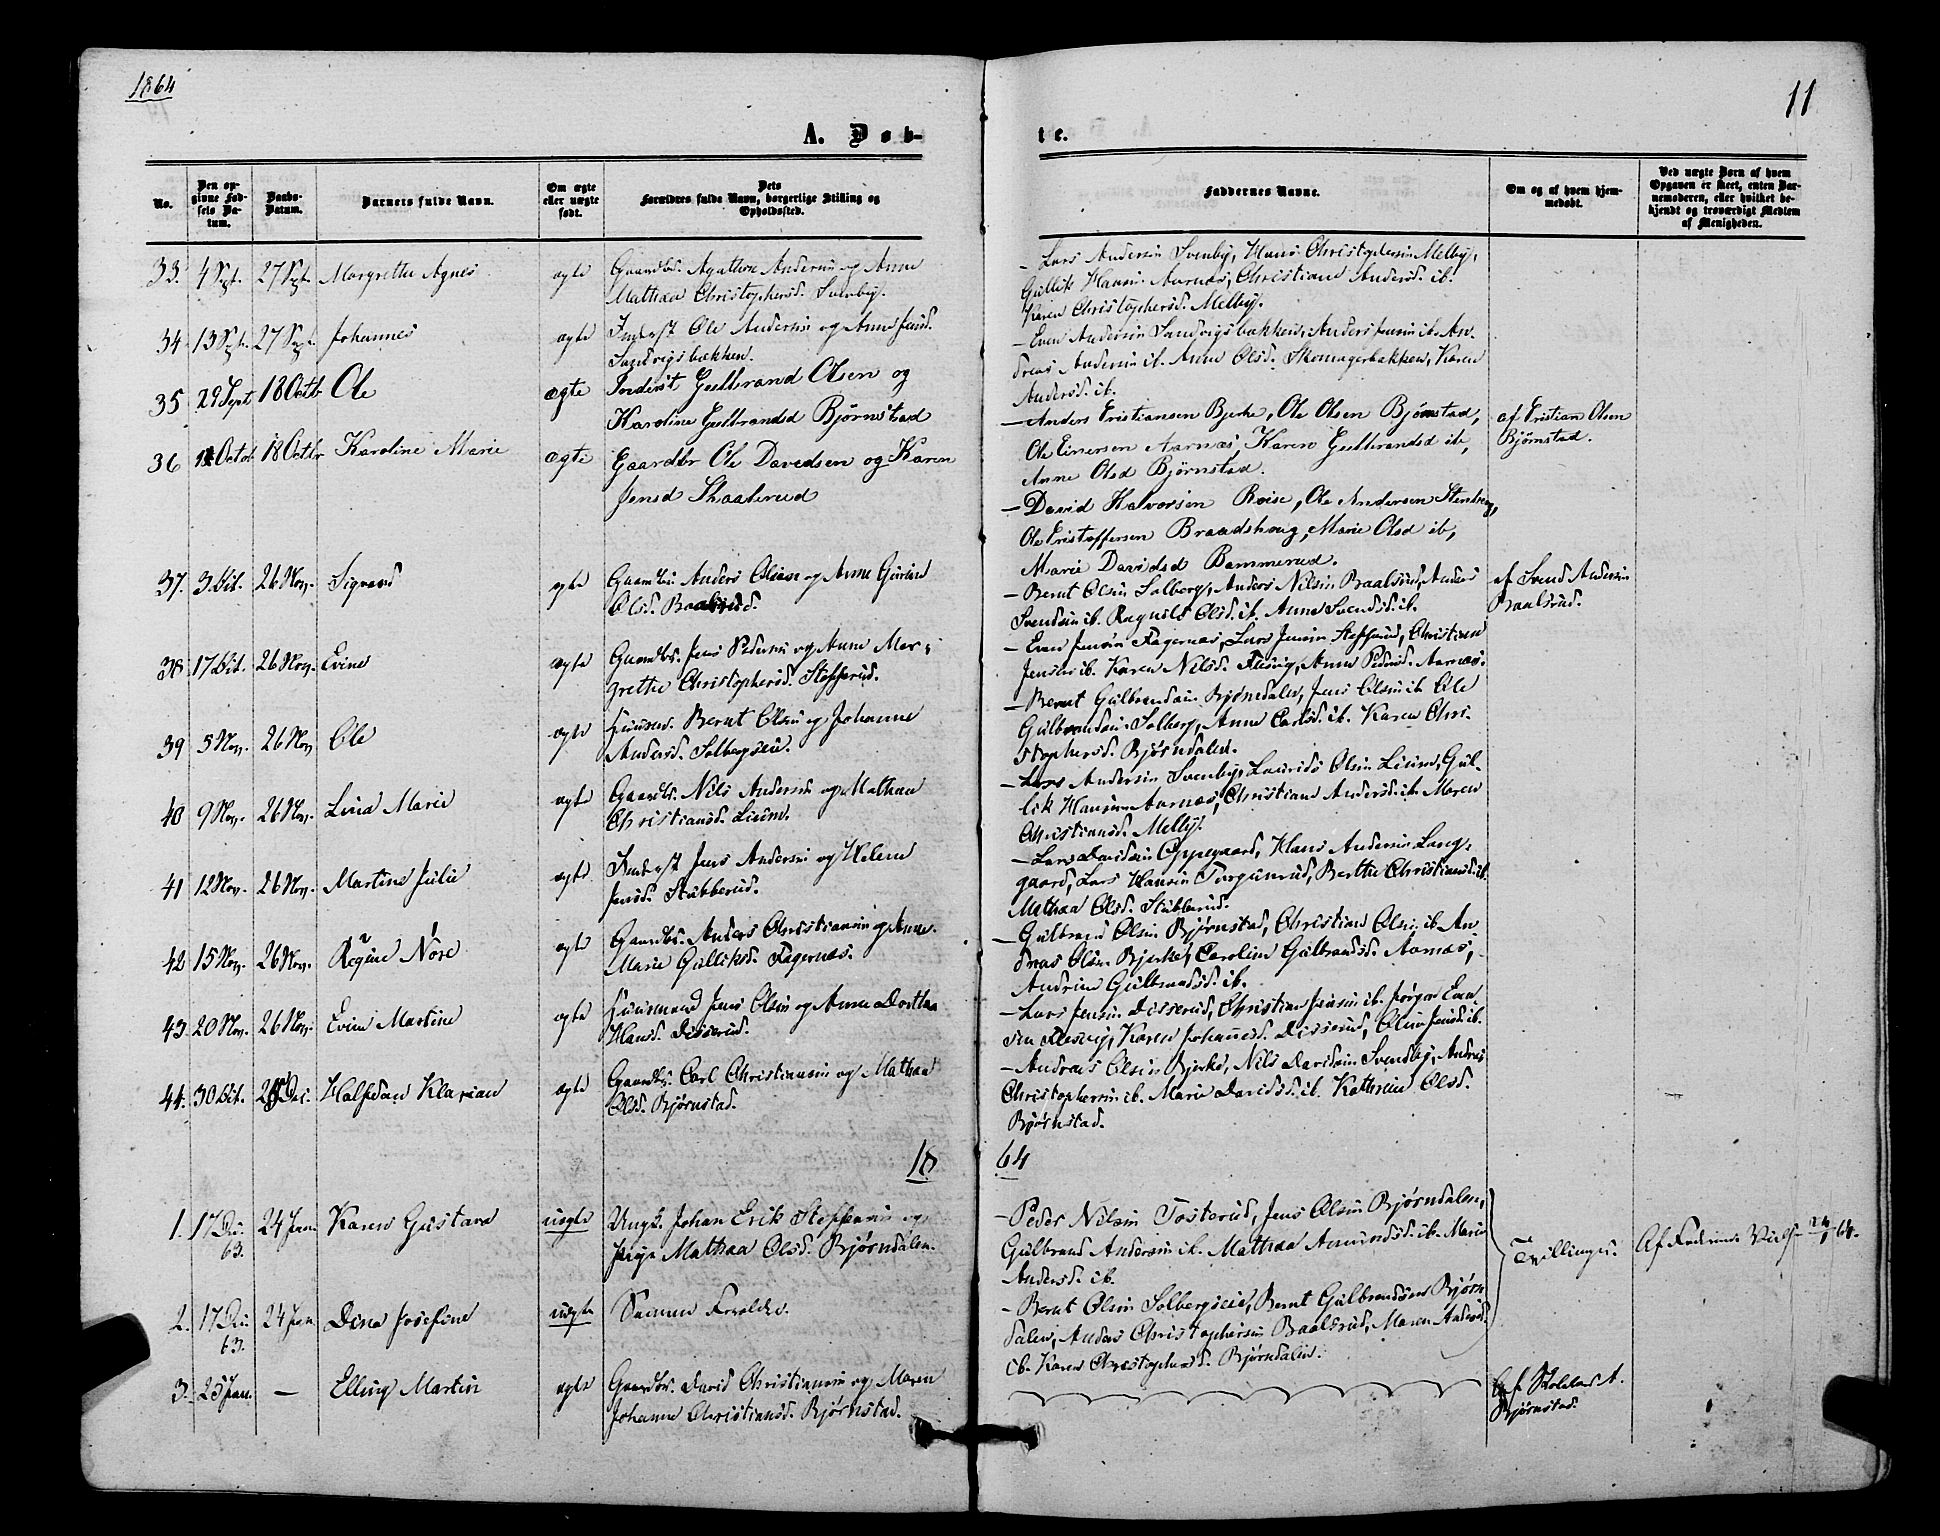 1864
11
A. Døb-
te.
No.
Den op-
givne Fød-
sels Da-
tum.
Daabs-
Datum.
Barnets fulde Navn.
Om ægte
eller uægte
født.
Dets
Forældres fulde Navn, borgerlige Stilling og
Opholdssted.
Faddernes Navne.
Om og af hvem hjem-
medøbt.
Ved uægte Børn af hvem
Opgaven er skeet, enten Bar-
nemoderen, eller hvilket be-
kjendt og troværdigt Medlem
af Menigheden.
33. 4 Spt. 27 Spt. Margrethe Agnes ægte Gaardbr. Agathon Andersen og Anne
Mathea Christophersd. Svenby.
– Lars Andersen Svenby, Hans Christophersen Melby,
Gullik Hansen Aarnæs, Christiane Andersd. ib.
Karen Christophersd. Melby.
34 13 Spt. 27 Spt. Johannes ægte Inderst Ole Andersen og Anne Jensd.
Sandvigsbakken.
– Even Andersen Sandvigsbakken, Anders Jensen ib. An-
dreas Andersen ib. Anne Olsd. Skomagerbakken, Karen
Andersd. ib.
35 29 Sept 18 Octb Ole ægte Inderst Gulbrand Olsen og
Karoline Gulbrandsd Bjørnstad
– Anders Cristiansen Bjerke, Ole Olsen Bjørnstad,
Ole Einersen Aarnæs, Karen Gulbrandsd ib,
Anne Olsd Bjørnstad.
af Cristian Olsen
Bjørnstad.
36 Octob 18 Octbr Karoline Marie ægte Gaardbr Ole Davedsen og Karen
Jensd Skaalerud
– David Halvorsen Roise, Ole Andersen Stenberg,
Ole Cristoffersen Braadshaug, Marie Olsd ib,
Marie Davidsd Bammerud.
37. 3 Okt. 26 Nov. Sigvard ægte Gaardbr. Anders Olsen og Anne Gurine
Olsd. Baalsrud.
– Bernt Olsen Solberg, Anders Nilsen Baalsrud, Anders
Svendsen ib. Ragnild Olsd. ib. Anne Svendsd. ib.
af Svend Andersen
Baalsrud.
38 17 Okt. 26 Nov. Evine ægte Gaardbr. Jens Pedersen og Anne Mar-
grethe Christophersd. Stefferud.
– Even Jensen Fagernæs, Lars Jensen Stefferud, Christian
Jensen ib. Karen Nilsd. Flesvig, Anne Pedersd. Aarnæs.
39 5 Nov. 26 Nov Ole ægte Huusmd. Bernt Olsen og Johanne
Andersd. Solbergseie.
– Bernt Gulbrandsen Bjørndalen, Jens Olsen ib. Ole
Gulbrandsen Solberg, Anne Carlsd. ib. Karen Chri-
stophersd. Bjørndalen.
40 9 Nov. 26 Nov. Lina Marie ægte Gaardbr. Nils Andersen og Mathea
Christiansd. Lium.
– Lars Andersen Svenby, Laurids Olsen Lium, Gul-
lik Hansen Aarnæs, Christiane Andersd. ib. Maren
Christiansd. Melby.
41 12 Nov. 26 Nov. Martine Julie ægte Inderst Jens Andersen og Helene
Jensd. Stubberud.
– Lars Davidsen Oppegaard, Hans Andersen Lang-
gaard, Lars Hansen Torgunrud, Berthe Christiansd. ib.
Mathea Olsd. Stubberud.
42 15 Nov. 26 Nov. Regine Nore ægte Gaardbr. Anders Christiansen og Anne
Marie Gulliksd. Fagernæs.
– Gulbrand Olsen Bjørnstad, Christian Olsen ib. An-
dreas Olsen Bjerke, Caroline Gulbrandsd. Aarnæs,
Andrine Gulbrandsd. ib.
43. 20 Nov. 26 Nov. Evine Martine ægte Huusmand Jens Olsen og Anne Dorthea
Hansd. Disserud.
– Lars Jensen Disserud, Christian Jensen ib. Jørgen Even-
sen Flesvig, Karen Johannesd. Disserud, Oline Jensd. ib.
44. 30 Okt. 26 Dec. Halfdan Klarian ægte Gaardbr. Carl Christiansen og Mathea
Olsd. Bjørnstad.
– Andreas Olsen Bjerke, Nils Davidsen Svendby, Andreas
Christophersen ib. Marie Davidsd. ib. Kathrine Olsd.
Bjørnstad.
18
64
1. 17 Dec. 63. 24 Jan. Karen Gustava uægte Ungk. Johan Erik Steffensen og
Pige Mathea Olsd. Bjørndalen.
– Peder Nilsen Tosterud, Jens Olsen Bjørndalen,
Gulbrand Andersen ib. Mathea Amundsd. ib. Marie
Andersd. ib.
Tvillinger.
2. 17 Dec. 63. 24 Jan Dina Josefine uægte Samme Forældre.
– Bernt Olsen Solbergseie, Bernt Gulbrandsen Bjørn-
dalen, Anders Christophersen Baalsrud, Maren Andersd.
ib. Karen Christophersd. Bjørndalen.
3. 25 Jan. – Elling Martin ægte Gaardbr. David Christiansen og Maren
Johanne Christiansd. Bjørnstad.
Bjørnstad.